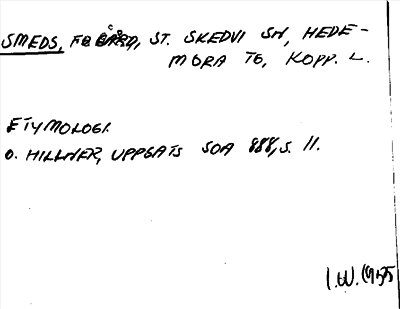 SMEDS, FÖ GÅRD, ST. SKEDVI SN, HEDE-
MORA TG, KOPP. L.
ETYMOLOGI.
O. HILLNER, UPPSATS SOA 888, S. 11.
I.W. 1955